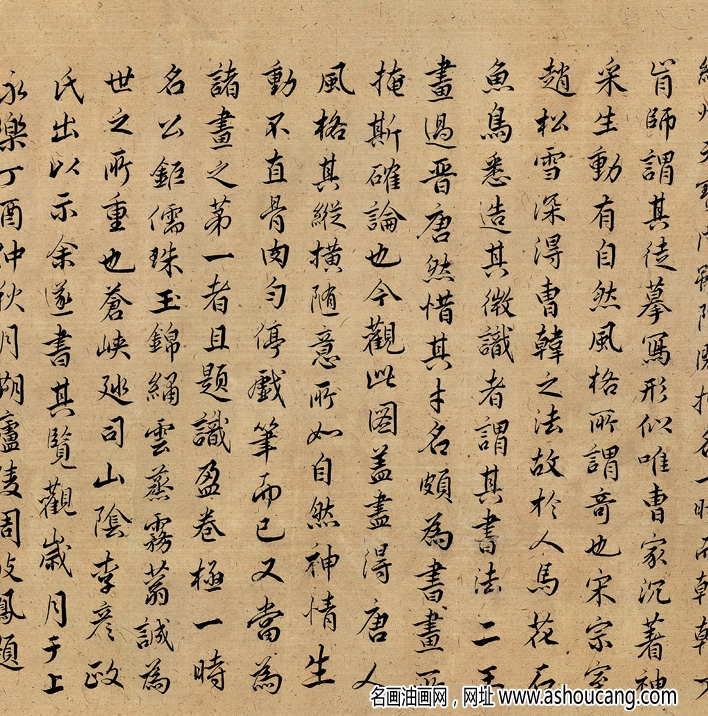 名一時而
肯師謂其徒摹寫形似唯曹家沉著神
采生動有自然風格所謂奇也宋宗室
趙松雪深得曹韓之法故於人馬花石
魚鳥悉造其微識者謂其書法二王
畫過晋唐然惜其才名頗為書畫所
掩斯確論也今觀此圖盖盡得唐人
風格其縱橫隨意所如自然神情生
動不直骨肉勻停戲筆而已又當為
諸畫之第一者且題識盈卷極一時
名公鉅儒珠玉錦繡雲蒸霧蓊誠為
世之所重也蒼峽廵司山陰李彥政
氏出以示余遂書其覽觀歲月于上
永樂丁酉仲秋月朔廬陵周岐鳳題
名画油画网，网址 www.ashoucang.com